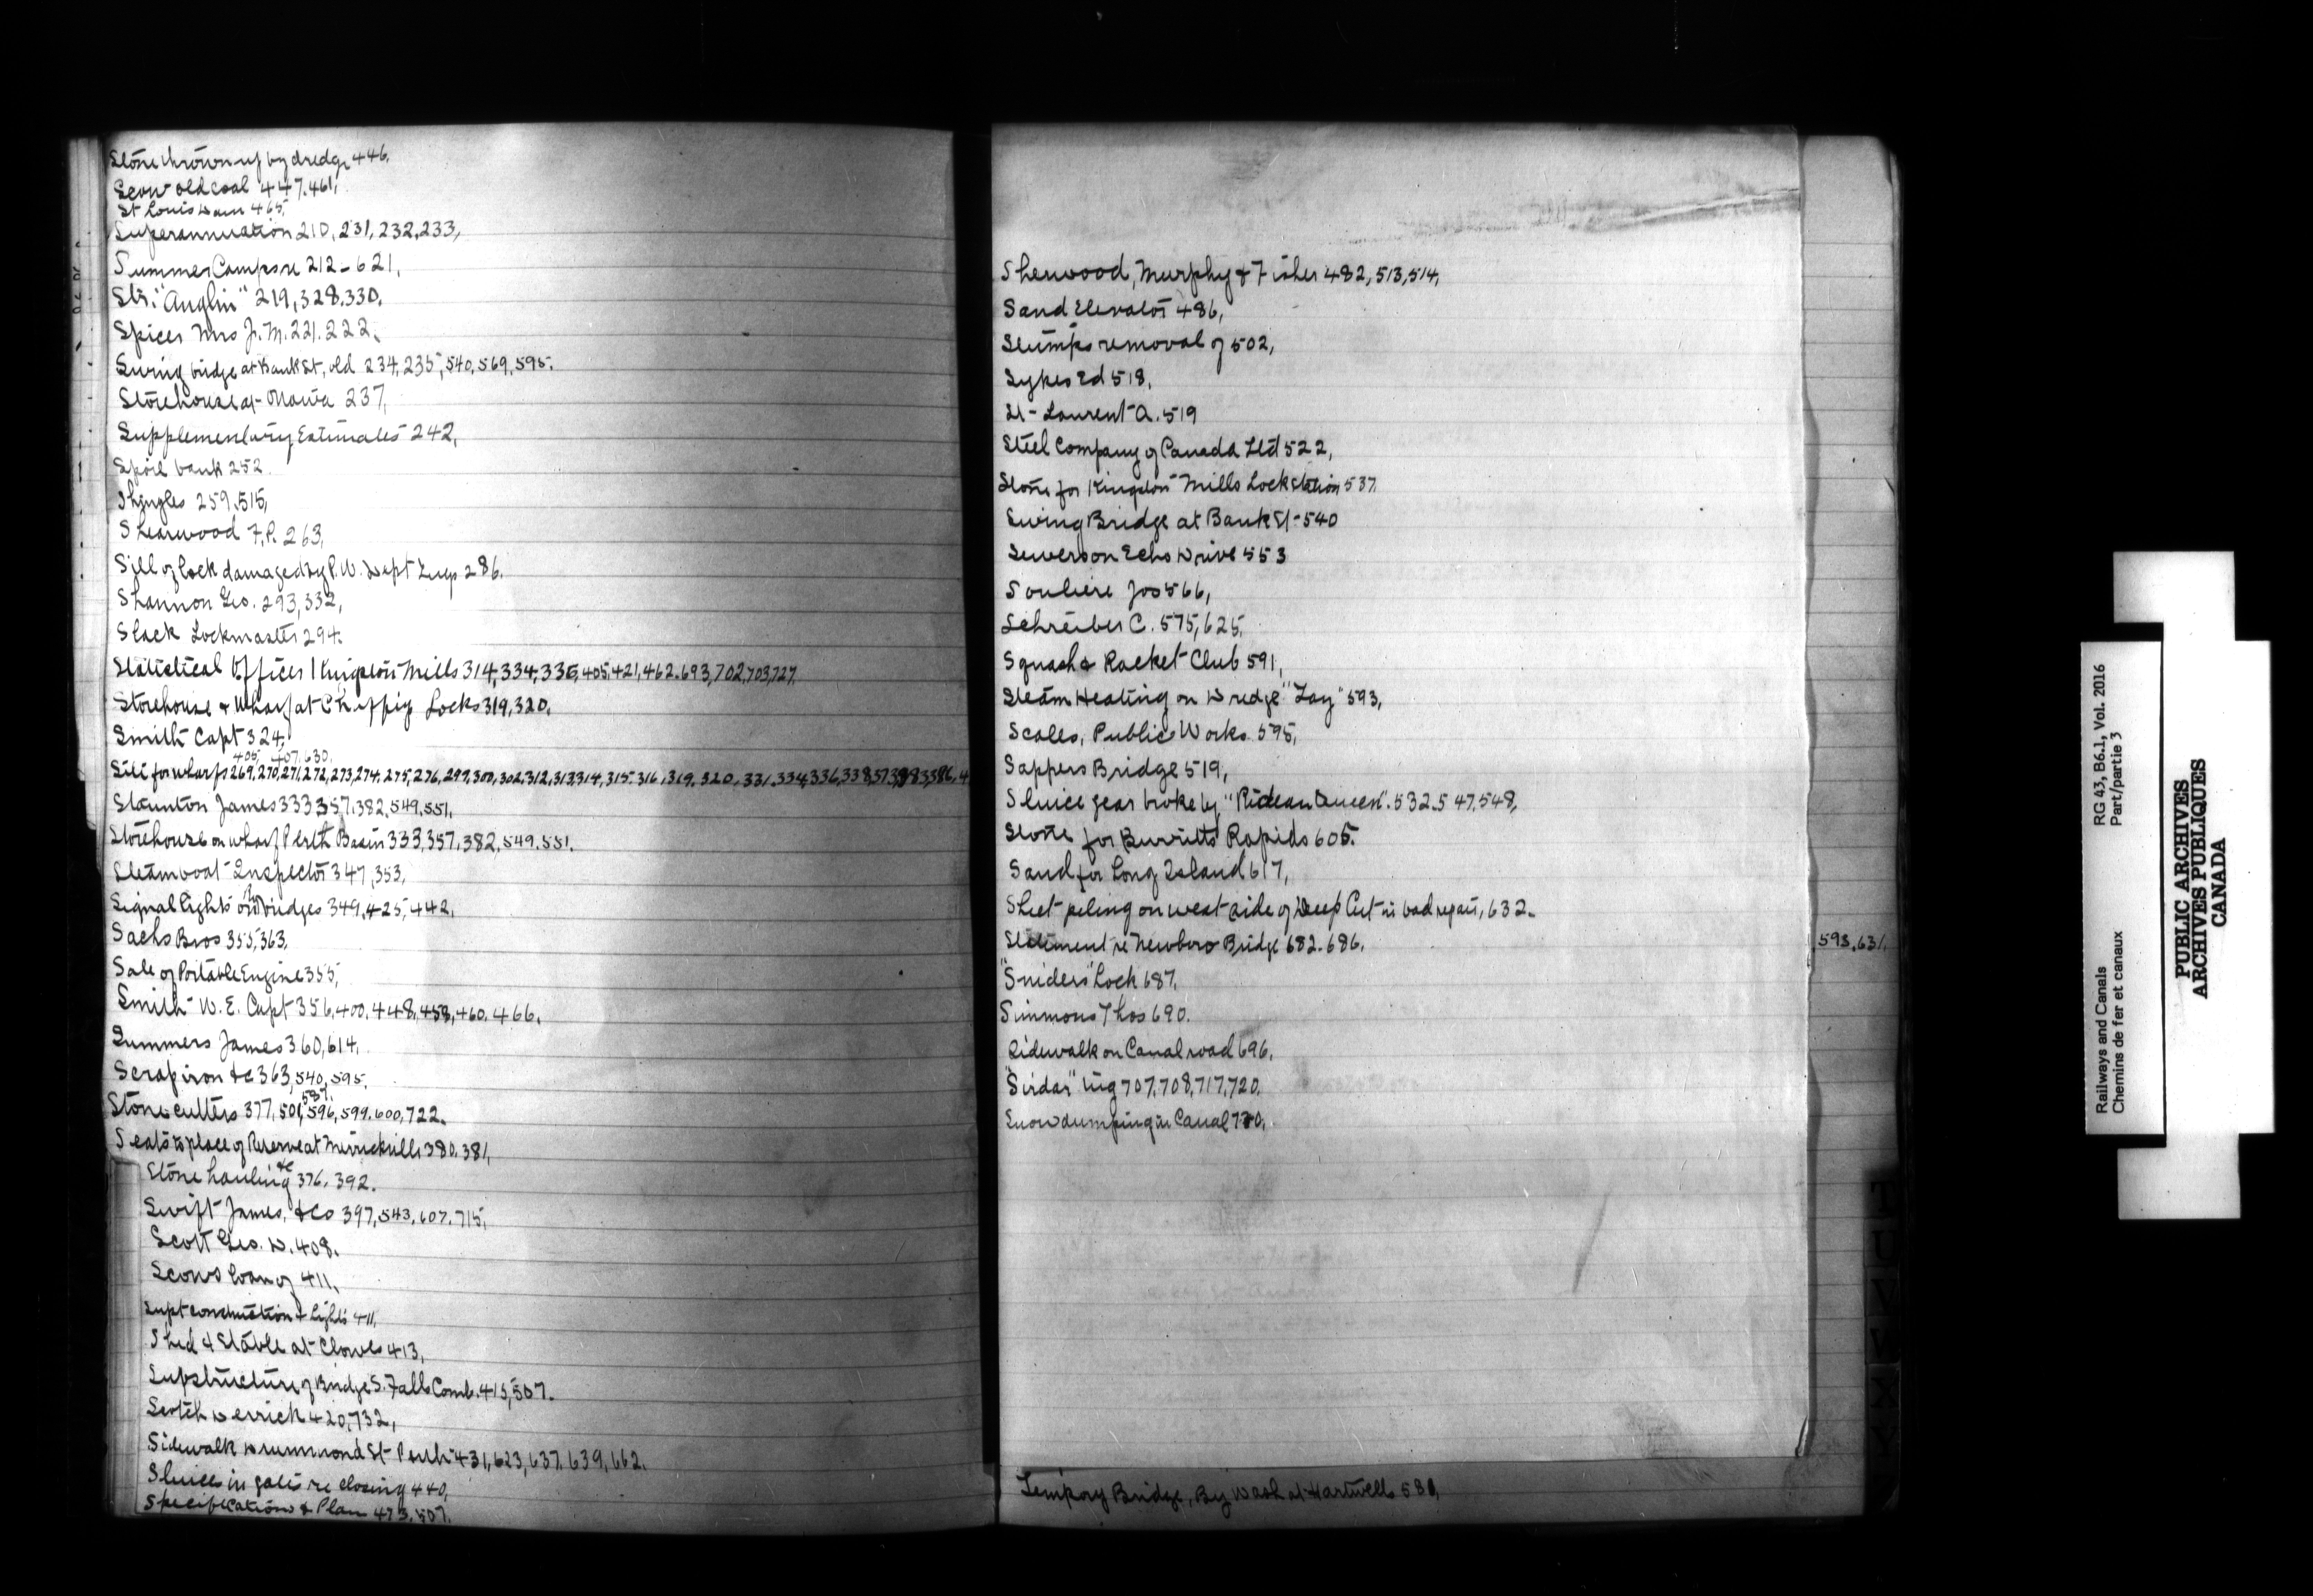 Stone thrown up by dredge 446,
Scow old coal 447.461,
St Louis Dam 465,
Superannuation 210, 231, 232, 233,
Summer Camps re 212-621,
Str. "Anglin" 219, 328, 330,
Spicer Mrs J. M. 221. 222,
Swing bridge at Bank St, old 234, 235, 540, 569, 595.
Storehouse at Ottawa 237,
Supplementary Estimates 242,
Spoil bank 252
Shingles 259, 515,
Shearwood F. P. 263,
Sill of lock damaged by P. W. Dept Tugs 286.
Shannon Geo. 293, 332,
Slack Lockmaster 294.
Statistical Offices Kingston Mills 314, 334, 336, 405, 421, 462. 693, 702, 703, 727,
Storehouse & Wharf at Chaffeys Locks 319, 320,
Smith Capt 324,
405, 407, 630,
for wharfs 269, 270, 271, 272, 273, 274, 275, 276, 297, 300, 302, 312, 313, 314, 315. 316, 319. 320, 331. 334, 336, 338,
Staunton James 333 357, 382, 549, 551,
Storehouse on wharf Perth Basin 333, 357, 382, 549. 551.
Steamboat Inspector 347, 353,
Signal lights on bridges 349, 425, 442,
Sachs Bros 355, 363,
Sale of Portable Engine 355,
Smith W. E. Capt 356, 400, 448, 458, 460, 466.
Summers James 360, 614,
Scrap iron &c 363, 540, 595,
587,
Stone cutters 377, 501, 596, 599. 600, 722.
Seats to place of Reserve at Merrickville 380, 381,
Stone hauling &c 376, 392.
Swift James, & Co 397, 543, 607, 715,
Scott Geo. D. 408.
Scows loan of 411,
Supt construction & Lights 411,
Shed & Stable at Clowes 413,
Supstructure of Bridge S. Falls Comb. 415, 507.
Scotch Derrick 420, 732,
Sidewalk Drummond St Perth 431, 623, 637. 639, 662.
Sluices in gates re closing 440,
Specifications & Plan 473. 507.
Sherwood, Murphy & Fisher 482, 513, 514,
Sand Elevator 486,
Stumps removal of 502,
Sykes Ed 518,
St-Laurent A. 519
Steel Company of Canada Ltd 522,
Stone for Kingston Mills Lockstation 537,
Swing Bridge at Bank St-540
Sewers on Echo Drive 553
Souliere Jos 566,
Schreiber C. 575, 625,
Squash & Racket Club 591,
Steam Heating on Dredge "Tay" 593,
Scales, Public Works 595,
Sappers Bridge 519,
Sluice gear broke by "Rideau Queen". 532. 547, 548,
Stone for Burritts Rapids 605.
Sand for Long Island 617,
Sheet piling on west side of Deep Cut in bad repair, 632.
Statement re Newboro Bridge 682. 686.
593, 631,
"Sniders" Lock 687,
Simmons Thos 690.
Sidewalk on Canal road 696,
"Sirdar" tug 707, 708, 717, 720.
Snow dumping in Canal 730,
Tempory Bridge, By Wash at Hartwells 580,
T
U
V
W
X
Y
RG 43, B6.1, Vol. 2016
Part/partie 3
Railways and Canals
Chemins de fer et canaux
PUBLIC ARCHIVES
ARCHIVES PUBLIQUES
CANADA